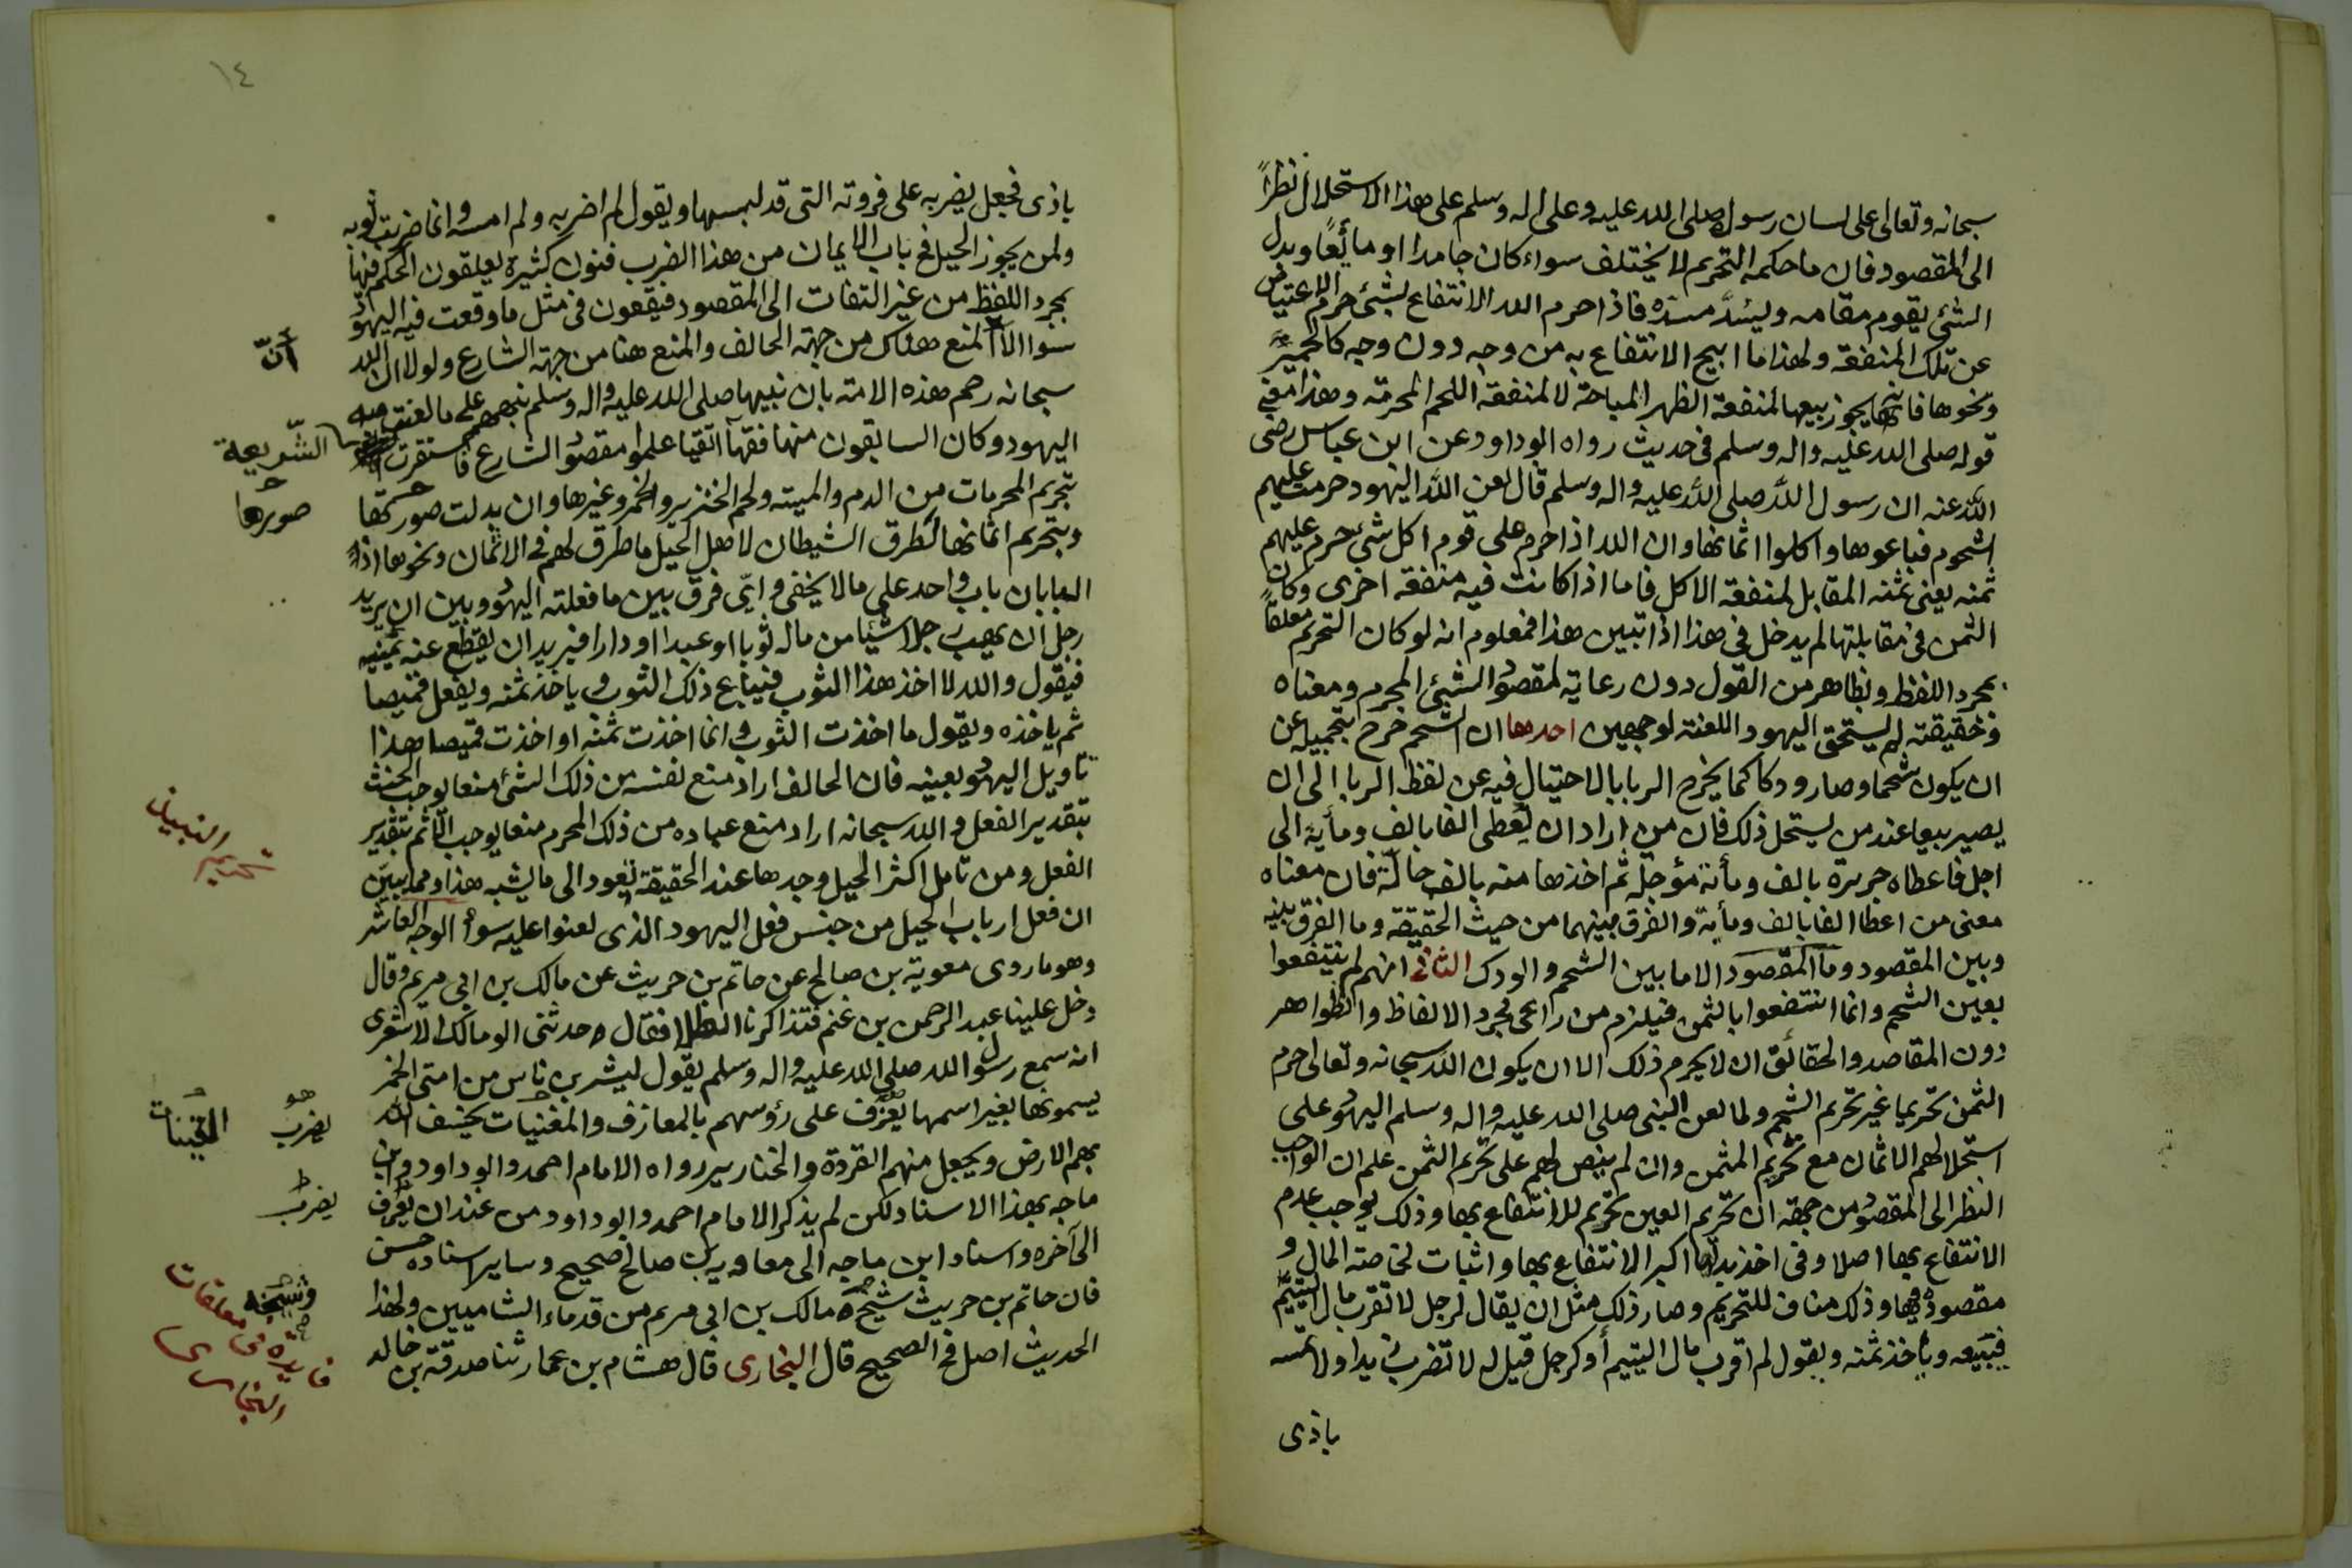 سبحانه وتعالى على لسان رسوله صلى الله عليه وعلى اله وسلم على هذا الاستحلال نظراً
الى المقصود فان ما حكمه التحريم لا يختلف سواء كان جامدا او مائعًا وبدل
الشئ يقوم مقامه ويسُدَّ مسدّه فاذا حرم الله الانتفاع بشئ حرم الاعتياض
عن تلك المنفعة ولهذا ما ابيح الانتفاع به من وجه دون وجه كالحمير
ونحوها فانها يجوز بيعها لمنفعة الظهر المباحة لا لمنفعة اللحم المحرمة وهذا معنى
قوله صلى الله عليه واله وسلم فى حديث رواه ابو داود عن ابن عباس رضى
اللّٰه عنه ان رسول اللّٰه صلى اللّٰه عليه واله وسلم قال لعن اللّٰه اليهود حرمت عليهم
الشحوم فباعوها واكلوا اثمانها وان الله اذا حرم على قوم اكل شئ حرم عليهم
ثمنه يعنى ثمنه المقابل لمنفعة الاكل فاما اذا كانت فيه منفعة اخرى وكان
الثمن فى مقابلتها لم يدخل فى هذا اذا تبين هذا فمعلوم انه لو كان التحريم معلقاً
بمجرد اللفظ وبظاهر من القول دون رعاية لمقصود الشئ المحرم ومعناه
وحقيقته لم يستحق اليهود اللعنة لوجهين احدها ان الشحم خرج بتجميله عن
ان يكون شحما وصار ودكا كما يخرج الربا بالاحتيال فيه عن لفظ الربا الى ان
يصير بيعا عند من يستحل ذلك فان من اراد ان يُعطى الفا بالف ومأية الى
اجل فاعطاه حريرة بالف ومأية مؤجلة ثم اخذها منه بالف حالّة فان معناه
معنى من اعطا الفا بالف ومأية والفرق بينهما من حيث الحقيقة وما الفرق بينه
وبين المقصود وما المقصود الا ما بين الشحم والودك الثانى انهم لم ينتفعوا
بعين الشحم وانما انتفعوا بالثمن فيلزم من راعى مجرد الالفاظ والظواهر
دون المقاصد والحقائق ان لا يحرم ذلك الا ان يكون اللّٰه سبحانه وتعالى حرم
الثمن تحريما غير تحريم الشحم ولما لعن النبى صلى الله عليه واله وسلم اليهود على
استحلالهم الاثمان مع تحريم المثمن وان لم ينص لهم على تحريم الثمن علم ان الواجب
النظر الى المقصود من جهة ان تحريم العين تحريم للانتفاع بها وذلك يوجب عدم
الانتفاع بها اصلا وفى اخذ بدلها اكبر الانتفاع بها واثبات لخاصة المال و
مقصوده فيها وذلك مناف للتحريم وصار ذلك مثل ان يقال لرجل لا تقرب مال اليتيم
فيبيعه ويأخذ ثمنه ويقول لم اقرب مال اليتيم أو كرجل قيل له لا تضرب زيدا ولا تمسه
باذى
١٤
باذى فجعل يضربه على فروته التى قد لبسها ويقول لم اضربه ولم امسه وانما ضربت ثوبه
ولمن يجوز الحيل فى باب الايمان من هذا الضرب فنون كثيرة يعلقون الحكم فيها
بمجرد اللفظ من غير التفات الى المقصود فيقعون فى مثل ما وقعت فيه اليهود
سوا الا ان المنع هناك من جهة الحالف والمنع هنا من جهة الشارع ولولا ان الله
أنّ
سبحانه رحم هذه الامة بان نبيها صلى الله عليه واله وسلم نبههم على ما لعنت به
اليهود وكان السابقون منها فقهآ اتقيا علموا مقصود الشارع فاستقرت
الشّريعة
بتحريم المحرمات من الدم والميتة ولحم الخنزير والخمر وغيرها وان بدلت صورتها
صورها
وبتحريم اثمانها لطرق الشيطان لاهل الحيل ما طرق لهم فى الاثمان ونحوها اذ
البابان باب واحد على ما لا يخفى واىّ فرق بين ما فعلته اليهود وبين ان يريد
رجل ان يهب رجلا شيئا من ماله ثوبا او عبدا او دارا فيريد ان يقطع عنه يمينه
فيقول والله لا اخذ هذا الثوب فيباع ذلك الثوب وياخذ ثمنه ويفعل قميصا
ثم ياخذه ويقول ما اخذت الثوب وانما اخذت ثمنه او اخذت قميصا هذا
تاويل اليهود بعينه فان الحالف اراد منع نفسه من ذلك الشئ منعا يوجب الحنث
بتقدير الفعل والله سبحانه اراد منع عباده من ذلك المحرم منعا يوجب الاثم بتقدير
الفعل ومن تامل اكثر الحيل وجدها عند الحقيقة تعود الى ما يشبه هذا ومما يبيّن
تحريم النبيذ
ان فعل ارباب الحيل من جنس فعل اليهود الذى لعنوا عليه سوأ الوجه العاشر
وهو ما روى معوية بن صالح عن حاتم بن حريث عن مالك بن ابى مريم وقال
دخل علينا عبد الرحمن بن غنم فتذاكرنا الطلا فقال حدثنى ابو مالك الاشعرى
انه سمع رسول الله صلى الله عليه واله وسلم يقول ليشربن ناس من امتى الخمر
يسمونها بغير اسمها يعزف على رؤوسهم بالمعازف والمغنيات يخسف اللّٰه
هو
يضرب
القينات
بهم الارض ويجعل منهم القردة والخنازير رواه الامام احمد وابو داود وابن
ماجه بهذا الاسناد لكن لم يذكر الامام احمد وابو داود من عند ان يعزف
يضرب
الى آخره واسناد ابن ماجه الى معاوية بن صالح صحيح وساير اسناده حسن
فان حاتم بن حريث شيخ ومالك بن ابى مريم من قدماء الشاميين ولهذا
وشيخه
الحديث اصل فى الصحيح قال البخارى قال هشام بن عمار ثنا صدقة بن خالد
فايده فى معلقات
البخارى